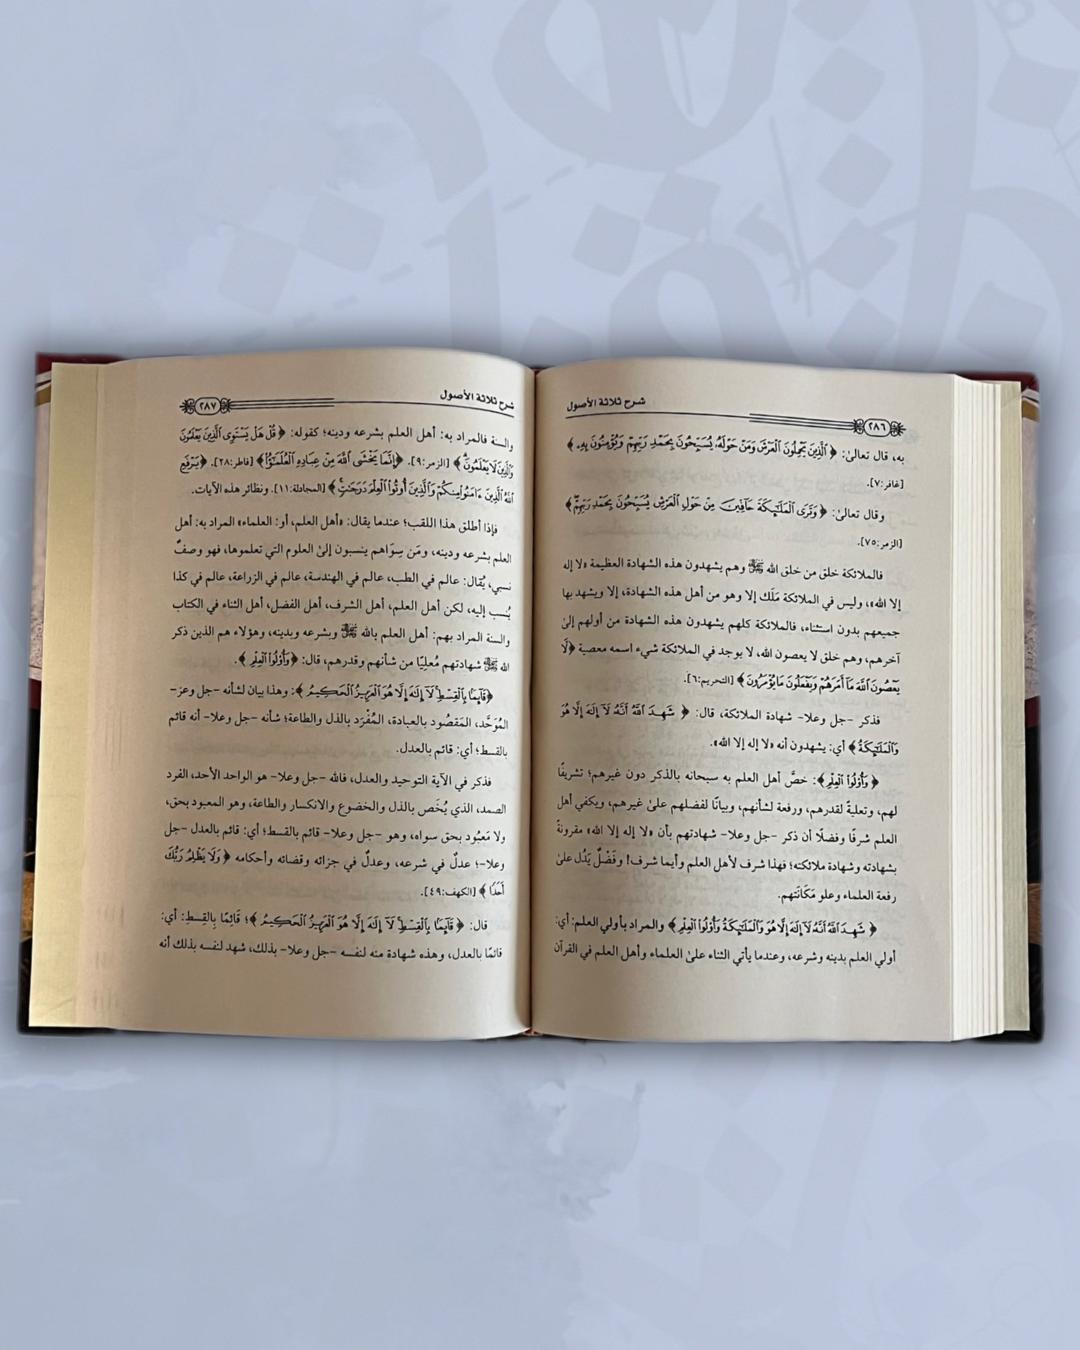 شرح ثلاثة الأصول
٢٨٦
به، قال تعالىٰ: ﴿ٱلَّذِينَ يَحْمِلُونَ ٱلْعَرْشَ وَمَنْ حَوْلَهُۥ يُسَبِّحُونَ بِحَمْدِ رَبِّهِمْ وَيُؤْمِنُونَ بِهِۦ﴾
[غافر:٧].
وقال تعالىٰ: ﴿وَتَرَى ٱلْمَلَٰٓئِكَةَ حَآفِّينَ مِنْ حَوْلِ ٱلْعَرْشِ يُسَبِّحُونَ بِحَمْدِ رَبِّهِمْ﴾
[الزمر:٧٥].
فالملائكة خلق من خلق الله ﷻ وهم يشهدون هذه الشهادة العظيمة «لا إله
إلا الله»، وليس في الملائكة مَلَك إلا وهو من أهل هذه الشهادة، إلا ويشهد بها
جميعهم بدون استثناء، فالملائكة كلهم يشهدون هذه الشهادة من أولهم إلىٰ
آخرهم، وهم خلق لا يعصون الله، لا يوجد في الملائكة شيء اسمه معصية ﴿لَّا
يَعْصُونَ ٱللَّهَ مَآ أَمَرَهُمْ وَيَفْعَلُونَ مَا يُؤْمَرُونَ﴾ [التحريم:٦].
فذكر -جل وعلا- شهادة الملائكة، قال: ﴿شَهِدَ ٱللَّهُ أَنَّهُۥ لَآ إِلَٰهَ إِلَّا هُوَ
وَٱلْمَلَٰٓئِكَةُ﴾ أي: يشهدون أنه «لا إله إلا الله».
﴿وَأُو۟لُوا۟ ٱلْعِلْمِ﴾: خصَّ أهل العلم به سبحانه بالذكر دون غيرهم؛ تشريفًا
لهم، وتعليةً لقدرهم، ورفعة لشأنهم، وبيانًا لفضلهم علىٰ غيرهم، ويكفي أهل
العلم شرفًا وفضلًا أن ذكر -جل وعلا- شهادتهم بأن «لا إله إلا الله» مقرونةً
بشهادته وشهادة ملائكته؛ فهذا شرف لأهل العلم وأيما شرف! وفَضْلٌ يَدُل علىٰ
رفعة العلماء وعلو مَكَانَتهم.
﴿شَهِدَ ٱللَّهُ أَنَّهُۥ لَآ إِلَٰهَ إِلَّا هُوَ وَٱلْمَلَٰٓئِكَةُ وَأُو۟لُوا۟ ٱلْعِلْمِ﴾ والمراد بأولي العلم: أي:
أولي العلم بدينه وشرعه، وعندما يأتي الثناء علىٰ العلماء وأهل العلم في القرآن
شرح ثلاثة الأصول
٢٨٧
والسنة فالمراد به: أهل العلم بشرعه ودينه؛ كقوله: ﴿قُلْ هَلْ يَسْتَوِى ٱلَّذِينَ يَعْلَمُونَ
وَٱلَّذِينَ لَا يَعْلَمُونَ﴾ [الزمر:٩]. ﴿إِنَّمَا يَخْشَى ٱللَّهَ مِنْ عِبَادِهِ ٱلْعُلَمَٰٓؤُا۟﴾ [فاطر:٢٨]. ﴿يَرْفَعِ
ٱللَّهُ ٱلَّذِينَ ءَامَنُوا۟ مِنكُمْ وَٱلَّذِينَ أُوتُوا۟ ٱلْعِلْمَ دَرَجَٰتٍ﴾ [المجادلة:١١]. ونظائر هذه الآيات.
فإذا أطلق هذا اللقب؛ عندما يقال: «أهل العلم، أو: العلماء» المراد به: أهل
العلم بشرعه ودينه، ومَن سِوَاهم ينسبون إلىٰ العلوم التي تعلموها، فهو وصفٌ
نسبي، يُقال: عالم في الطب، عالم في الهندسة، عالم في الزراعة، عالم في كذا
يُنسب إليه، لكن أهل العلم، أهل الشرف، أهل الفضل، أهل الثناء في الكتاب
والسنة المراد بهم: أهل العلم بالله ﷻ وبشرعه وبدينه، وهؤلاء هم الذين ذكر
الله ﷻ شهادتهم مُعلِيًا من شأنهم وقدرهم، قال: ﴿وَأُو۟لُوا۟ ٱلْعِلْمِ﴾.
﴿قَآئِمًۢا بِٱلْقِسْطِ لَآ إِلَٰهَ إِلَّا هُوَ ٱلْعَزِيزُ ٱلْحَكِيمُ﴾: وهذا بيان لشأنه -جل وعز-
المُوَحَّد، المَقصُود بالعبادة، المُفْرَد بالذل والطاعة؛ شأنه -جل وعلا- أنه قائم
بالقسط؛ أي: قائم بالعدل.
فذكر في الآية التوحيد والعدل، فالله -جل وعلا- هو الواحد الأحد، الفرد
الصمد، الذي يُخَص بالذل والخضوع والانكسار والطاعة، وهو المعبود بحق،
ولا مَعبُود بحق سواه، وهو -جل وعلا- قائم بالقسط؛ أي: قائم بالعدل -جل
وعلا-؛ عدلٌ في شرعه، وعدلٌ في جزائه وقضائه وأحكامه ﴿وَلَا يَظْلِمُ رَبُّكَ
أَحَدًا﴾ [الكهف:٤٩].
قال: ﴿قَآئِمًۢا بِٱلْقِسْطِ لَآ إِلَٰهَ إِلَّا هُوَ ٱلْعَزِيزُ ٱلْحَكِيمُ﴾؛ قَائِمًا بِالقِسطِ: أي:
قائمًا بالعدل، وهذه شهادة منه لنفسه -جل وعلا- بذلك، شهد لنفسه بذلك أنه